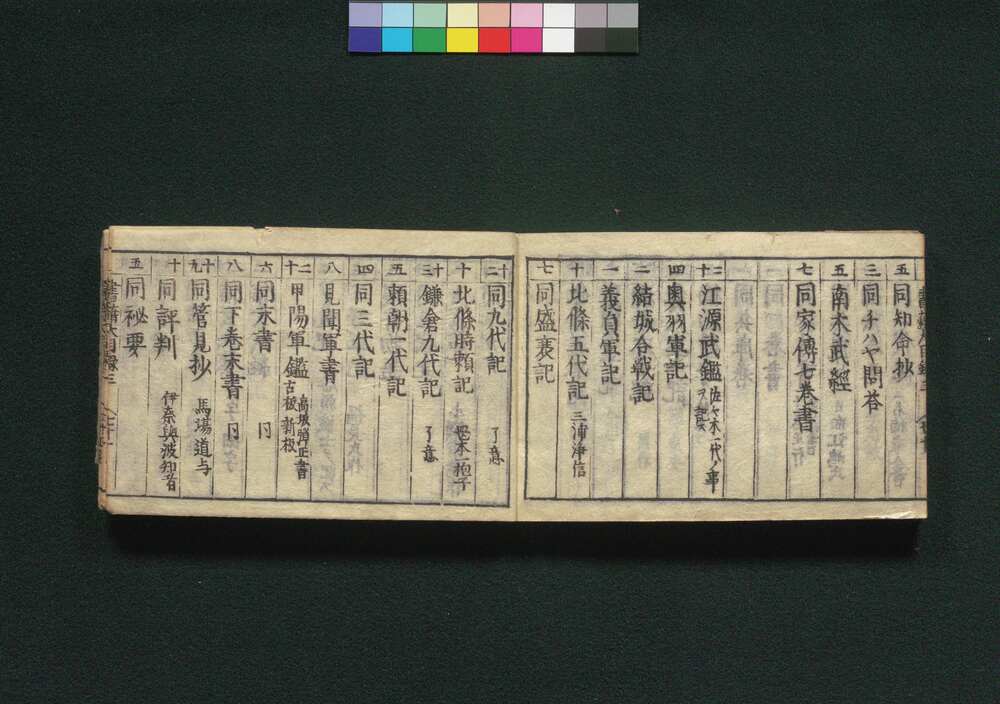 五 同知命抄
三 同チハヤ問荅
五 南木武經
七 同家傳七巻書
二十 江源武鑑 佐々木一代ノ事ヲ記ス
四 奥羽軍記
二 結城合戦記
一 義貞軍記
十 北條五代記 三浦浄信
七 同盛衰記
十二 同九代記 了意
十 北條時頼記
十三 鎌倉九代記 了意
五 頼朝一代記
四 同三代記
八 見聞軍書
二十 甲陽軍鑑 高坂弾正書 古板新板
六 同末書 同
八 同下巻末書 同
十九 同管見抄 馬場道与
十 同評判 伊奈與波知者
五 同祕要
書籍大目録三